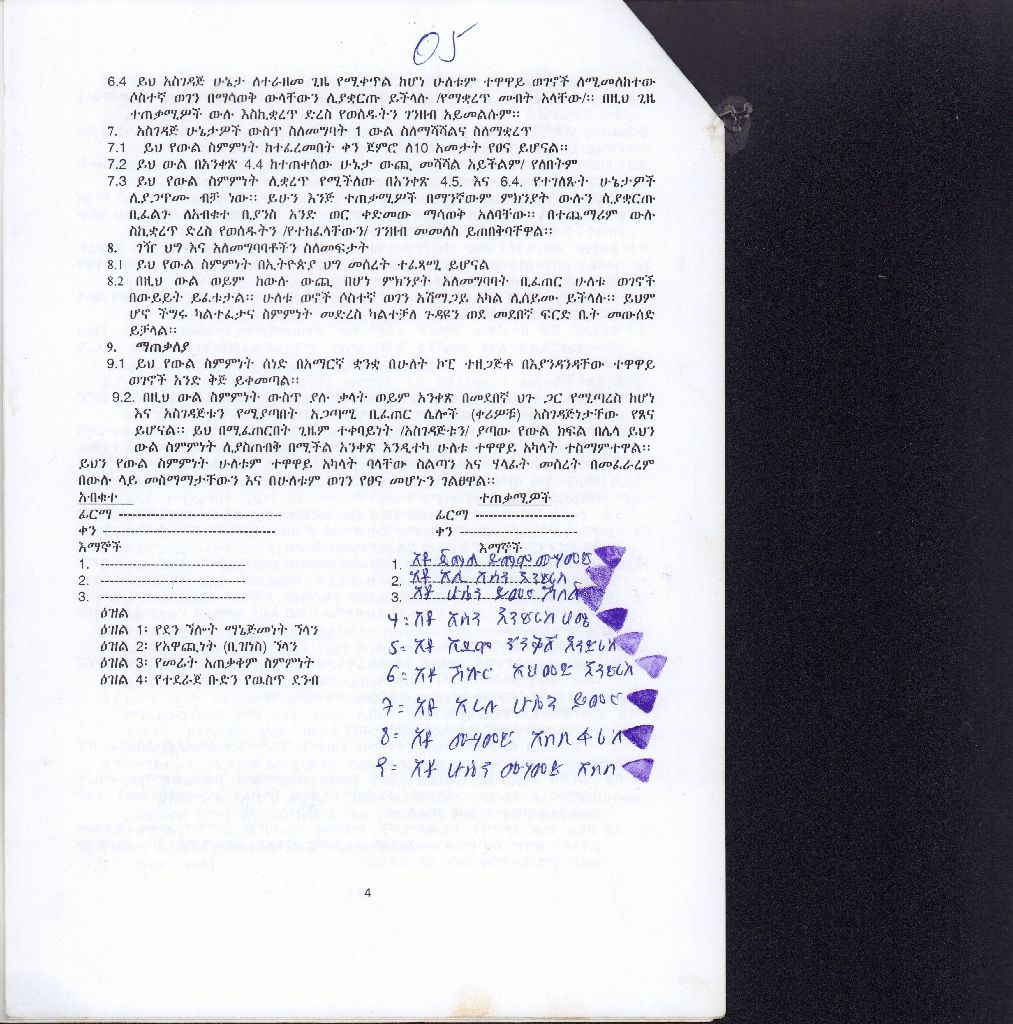 05
6.4 ይህ አስገዳጅ ሁኔታ ለተራዘመ ጊዜ የሚቀጥል ከሆነ ሁለቱም ተዋዋይ ወገኖች ለሚመለከተው
ሶስተኛ ወገን በማሳወቅ ውላቸውን ሊያቋርጡ ይችላሉ /የማቋረጥ መብት አላቸው/። በዚህ ጊዜ
ተጠቃሚዎች ውሉ እስኪቋረጥ ድረስ የወሰዱትን ገንዘብ አይመልሱም።
7. አስገዳጅ ሁኔታዎች ውስጥ ስለመግባት 1 ውል ስለማሻሻልና ስለማቋረጥ
7.1 ይህ የውል ስምምነት ከተፈረመበት ቀን ጀምሮ ለ10 አመታት የፀና ይሆናል።
7.2 ይህ ውል በአንቀጽ 4.4 ከተጠቀሰው ሁኔታ ውጪ መሻሻል አይችልም/ የለበትም
7.3 ይህ የውል ስምምነት ሊቋረጥ የሚችለው በአንቀጽ 4.5. እና 6.4. የተገለጹት ሁኔታዎች
ሊያጋጥሙ ብቻ ነው። ይሁን እንጅ ተጠቃሚዎች በማንኛውም ምክንያት ውሉን ሊያቋርጡ
ቢፈልጉ ለአብቁተ ቢያንስ አንድ ወር ቀድመው ማሳወቅ አለባቸው። በተጨማሪም ውሉ
ስኪቋረጥ ድረስ የወሰዱትን /የተከፈላቸውን/ ገንዘብ መመለስ ይጠበቅባቸዋል።
8. ገዥ ህግ እና አለመግባባቶችን ስለመፍታት
8.1 ይህ የውል ስምምነት በኢትዮጵያ ህግ መሰረት ተፈጻሚ ይሆናል
8.2 በዚህ ውል ወይም ከውሉ ውጪ በሆነ ምክንያት አለመግባባት ቢፈጠር ሁለቱ ወገኖች
በውይይት ይፈቱታል። ሁለቱ ወኖች ሶስተኛ ወገን አሸማጋይ አካል ሊሰይሙ ይችላሉ። ይህም
ሆኖ ችግሩ ካልተፈታና ስምምነት መድረስ ካልተቻለ ጉዳዩን ወደ መደበኛ ፍርድ ቤት መውሰድ
ይቻላል።
9. ማጠቃለያ
9.1 ይህ የውል ስምምነት ሰነድ በአማርኛ ቋንቋ በሁለት ኮፒ ተዘጋጅቶ በእያንዳንዳቸው ተዋዋይ
ወገኖች አንድ ቅጅ ይቀመጣል።
9.2. በዚህ ውል ስምምነት ውስጥ ያሉ ቃላት ወይም አንቀጽ በመደበኛ ህጉ ጋር የሚጣረስ ከሆነ
እና አስገዳጅቱን የሚያጣበት አጋጣሚ ቢፈጠር ሌሎች (ቀሪዎቹ) አስገዳጅነታቸው የጸና
ይሆናል። ይህ በሚፈጠርበት ጊዜም ተቀባይነት /አስገዳጅቱን/ ያጣው የውል ክፍል በሌላ ይህን
ውል ስምምነት ሊያስጠብቅ በሚችል አንቀጽ እንዲተካ ሁለቱ ተዋዋይ አካላት ተስማምተዋል።
ይህን የውል ስምምነት ሁለቱም ተዋዋይ አካላት ባላቸው ስልጣን እና ሃላፊት መሰረት በመፈራረም
በውሉ ላይ መስማማታቸውን እና በሁለቱም ወገን የፀና መሆኑን ገልፀዋል።
አብቁተ ተጠቃሚዎች
ፊርማ ------------------------------ ፊርማ ------------------------
ቀን -------------------------------- ቀን ------------------------
እማኞች እማኞች
1. --------------------------- 1. አቶ ይመር መሃመድ
2. --------------------------- 2. አቶ አሊ እንድሪስ
3. --------------------------- 3. አቶ ሁሴን ይመር
ዕዝል 4፡ አቶ እንድሪስ
ዕዝል 1፡ የደን ኘሎት ማኔጅመነት ኘላን 5፡ አቶ እንድሪስ
ዕዝል 2፡ የአዋጪነት (ቢዝነስ) ኘላን 6፡ አቶ አህመድ እንድሪስ
ዕዝል 3፡ የመሬት አጠቃቀም ስምምነት
ዕዝል 4፡ የተደራጀ ቡድን የዉስጥ ደንብ
7፡ አቶ ሁሴን ይመር
8፡ አቶ ሙሃመድ
9፡ አቶ ሁሴን ሙሃመድ
4